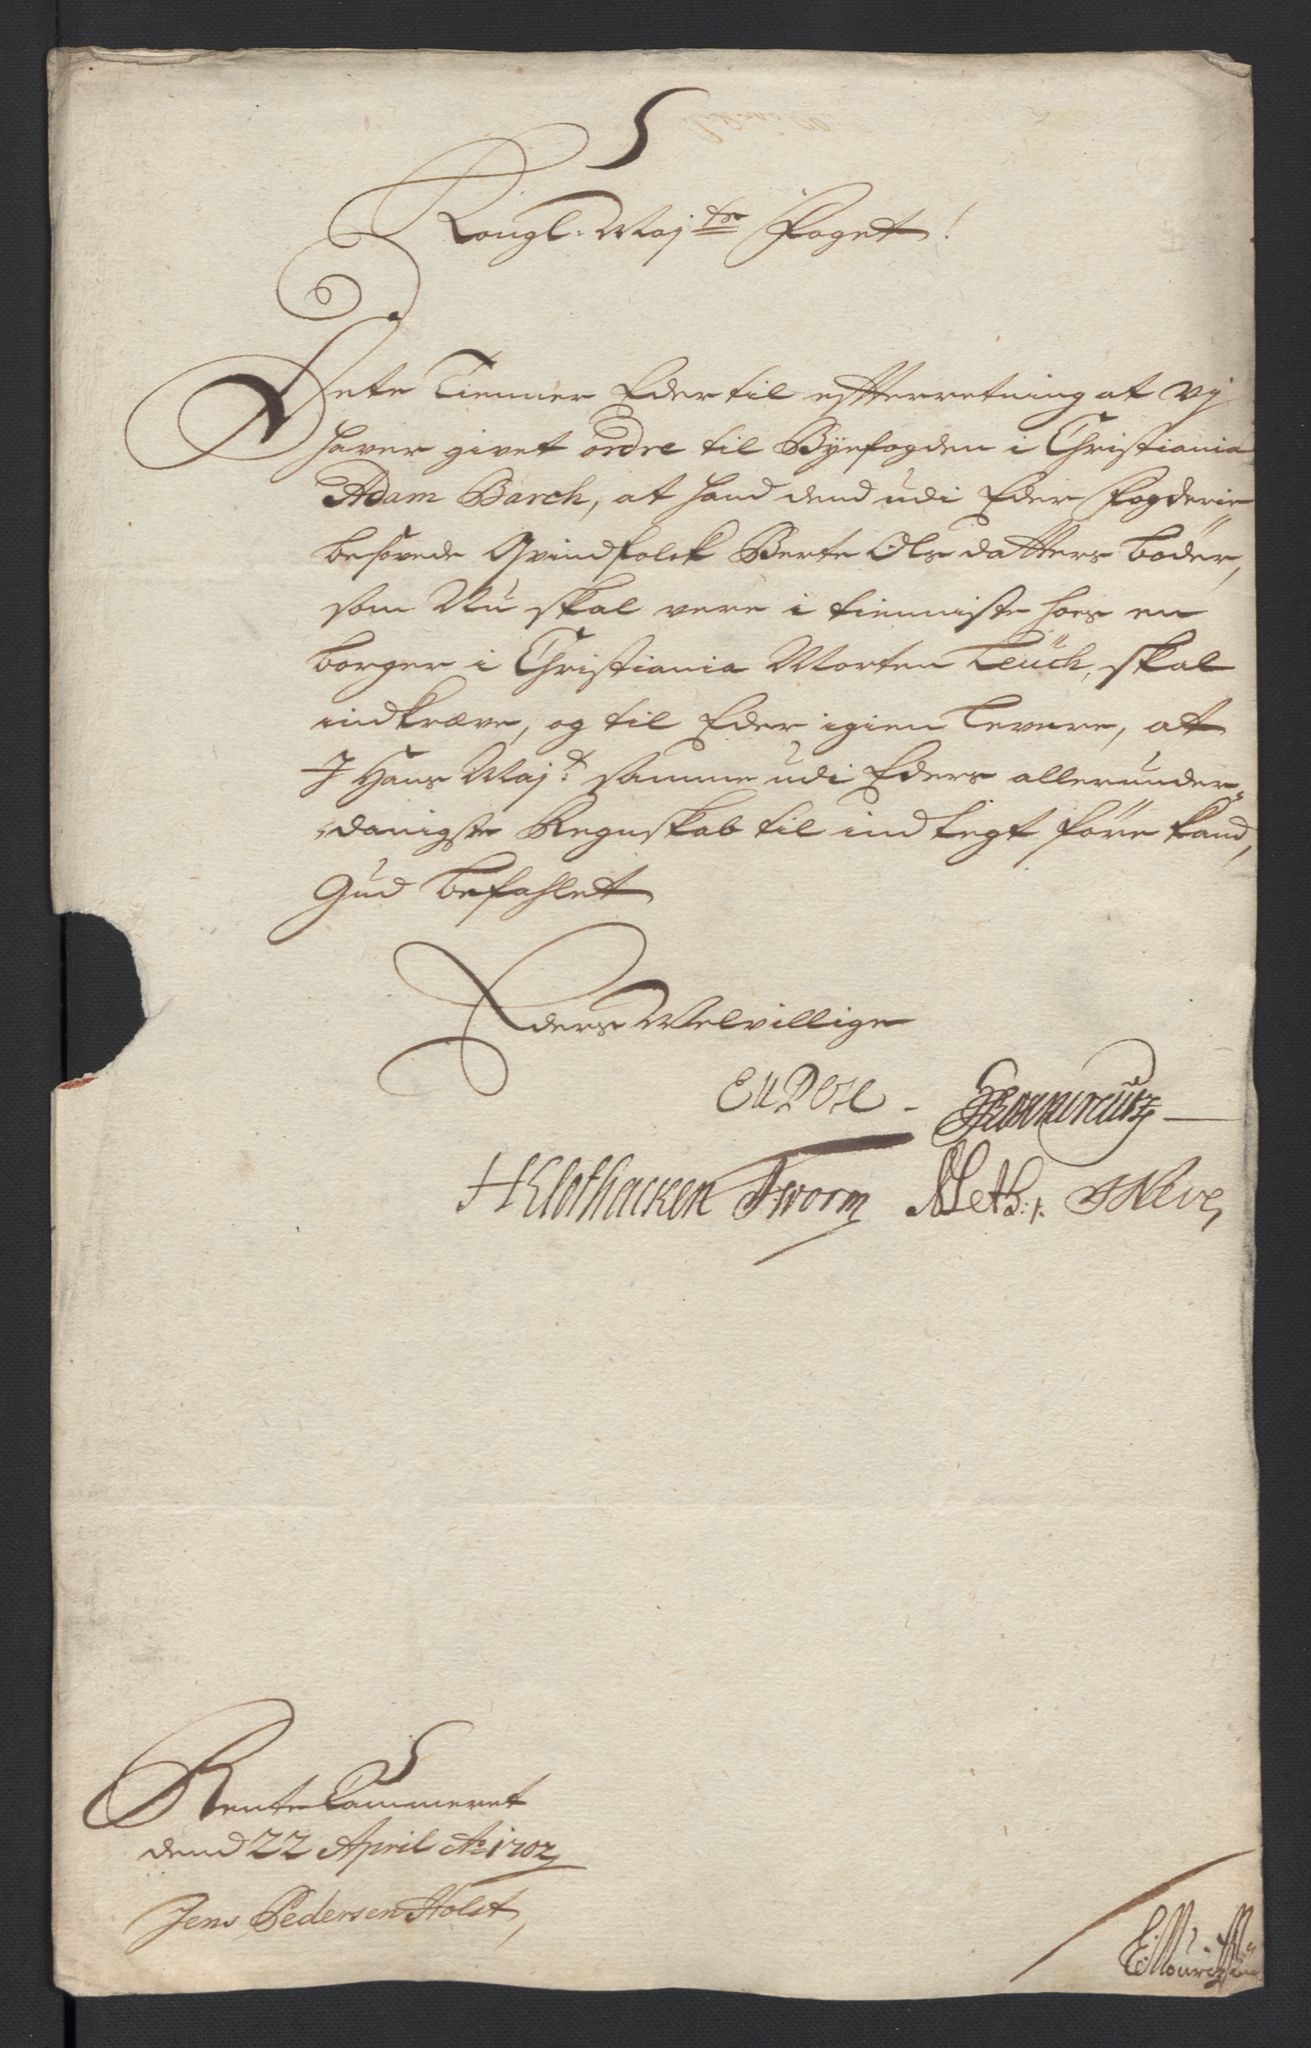 Kongl: Maj:ts Foget!
Dete Tienner Eder til efterretning at vj
haver givet ordre til Byefogden i Christiania
Adam Barch, at hand dend udi Eder Fogderie
besovede Qvindfolck Berte Olsdatters bøder,
som Nu skal vere i tienniste hoes en
borger i Christiania Morten Leuch, skal
indkræve, og til Eder igien levere, at
J Hans Maj:t samme udi Eders allerunder-
danigste Regnskab til indtegt føre kand,
Gud befahlet
Eders Velvillige
H Klothacken F Worm
Rente Kammeret
dend 22 April Ao 1702
Jens Pedersen Holst,